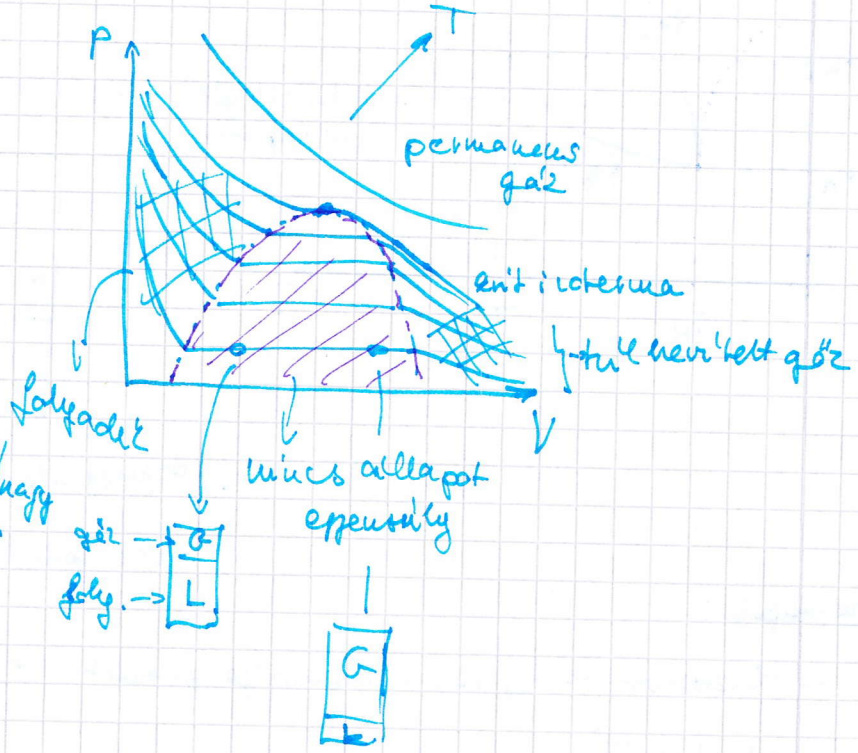 P
T
permanens
gáz
krit izoterma
túlhevített gőz
V
folyadék
nagy
nincs állapot
egyensúly
gőz → G
foly. → L
G